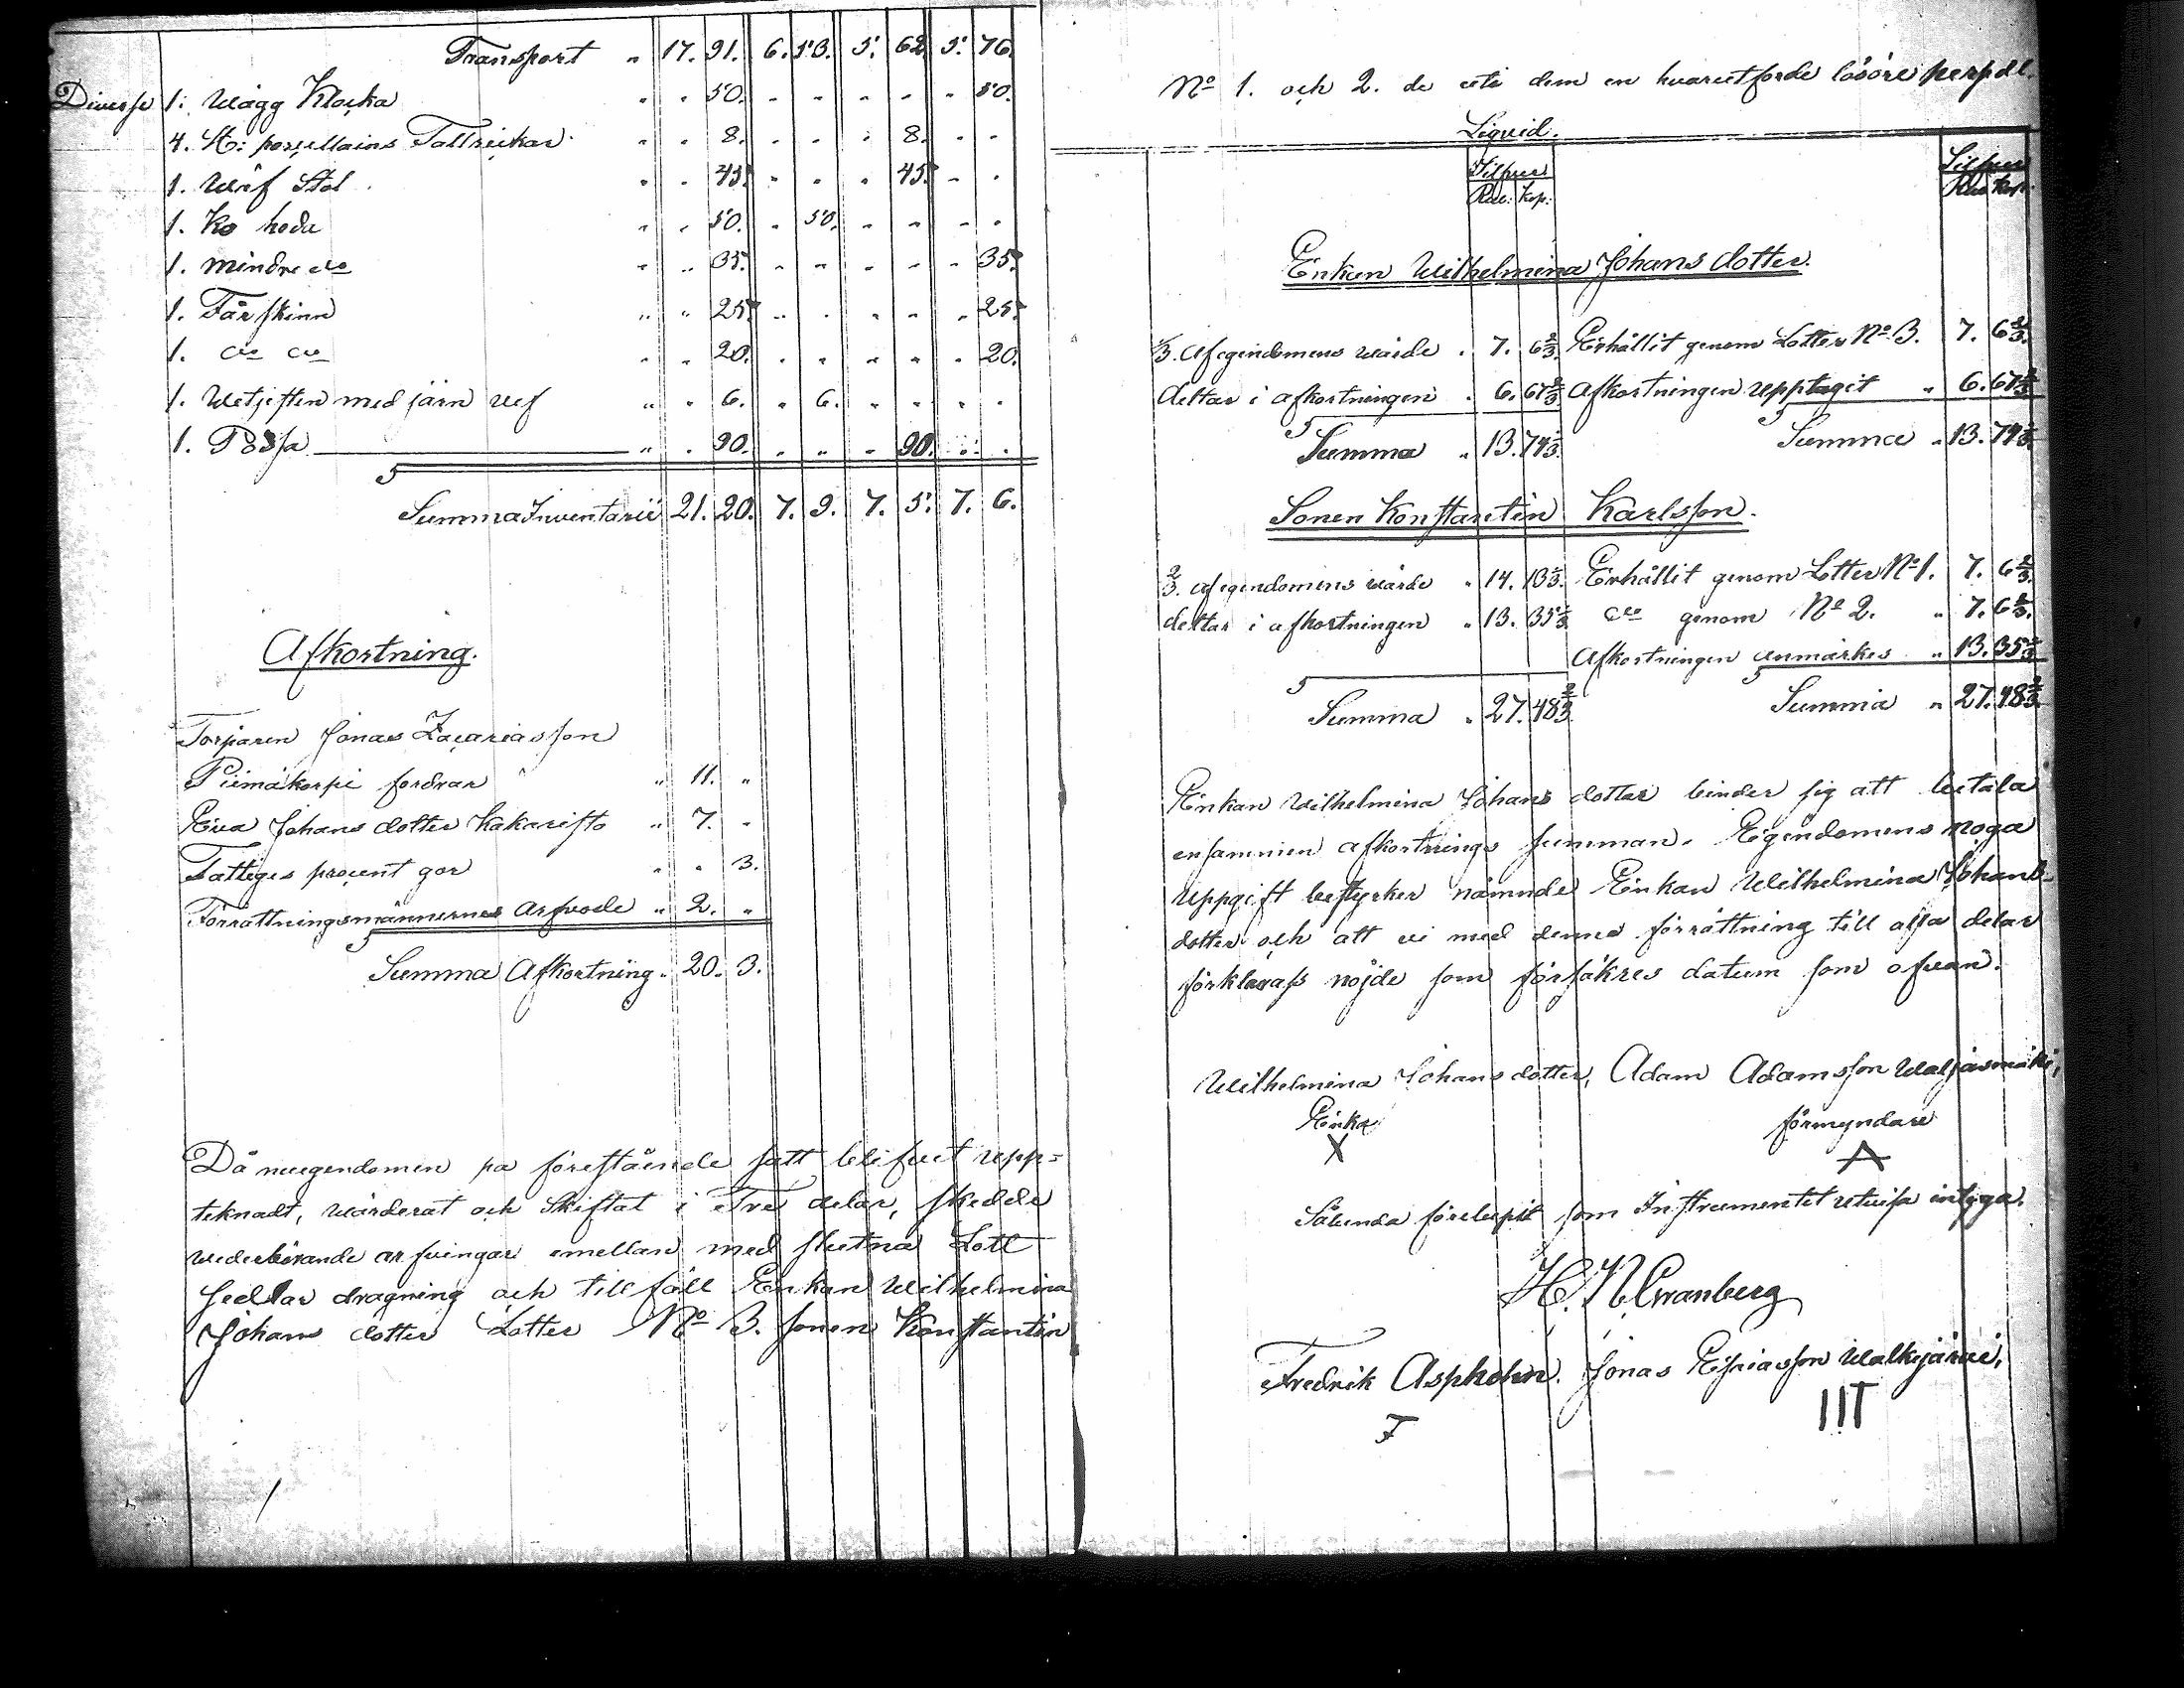 Transport " 17. 91. 6. 53. 5. 62. 5. 76.
Diverse 1. Wägg Klocka " " 50. " " " " " 50.
4. St: porcellains Tallrickar " " 8. " " " 8. " "
1. Wäf Stol " " 45. " " " 45. " "
1. Ko hoda " " 50. " 50. " " " "
1. mindre do " " 35. " " " " " 35.
1. Fårskinn " " 25. " " " " " 25.
1. do do " " 20. " " " " " 20.
1. med järn " " 6. " 6. " " " "
1. Påssa " " 90. " " " 90. " "
Summa Inventarii 21. 20. 7. 9. 7. 5. 7. 6.
Afkortning.
Torparen Jonas Zacariasson
Piimäkorpi fordrar " 11. "
Eva Johans dotter Kakaristo " 7. "
Fattiges procent gör " " 3.
Förrättningsmännernes Arfvode " 2. "
Summa Afkortning " 20. 3.
Då nu egendomen på förestående sätt blifvit upp=
teknadt, wärderat och Skiftat i Tre delar, skedde
wederbörande arfvingar emellan med slutna Lott
sedlar dragning och tillföll Enkan Wilhelmina
Johans dotter Lotten No 3. sonen Konstantin
No 1. och 2. de uti dem en hvar utförde lösöre persedl.
Liquid.
Silfver Silfver
Rub: Kop: Rub Kop:
Enkan Wilhelmina Johans dotter.
1/3. af egendomens wärde " 7. 6 2/3. Erhållit genom Lotten No 3. 7. 6 2/3.
deltar i afkortningen " 6. 67 2/3 Afkortningen upptagit " 6. 67 2/3
Summa " 13. 74 1/3. Summa " 13. 74 1/3
Sonen Konstantin Karlsson.
2/3. af egendomens wärde " 14. 13 1/3. Erhållit genom Lotten No 1. 7. 6 2/3.
deltar i afkortningen " 13. 35 1/3 do genom No 2. " 7. 6 2/3.
Afkortningen anmärkes " 13. 35 1/3
Summa " 27. 48 2/3 Summa " 27. 48 2/3.
Enkan Wilhelmina Johans dotter binder sig att betala
ensammen afkortnings summan. Egendomens noga
uppgift bestyrker nämnde Enkan Wilhelmina Johans-
dotter och att vi med denna förrättning till alla delar
förklarass nöjde som försäkres datum som ofvan.
Wilhelmina Johans dotter, Adam Adamsson
Enka förmyndare
X A
Sålunda förelupit som Instrumentet utvisa intyga.
H. N. Granberg
Fredrik Aspholm. Jonas Esaiasson Walkjärvi,
F IIT